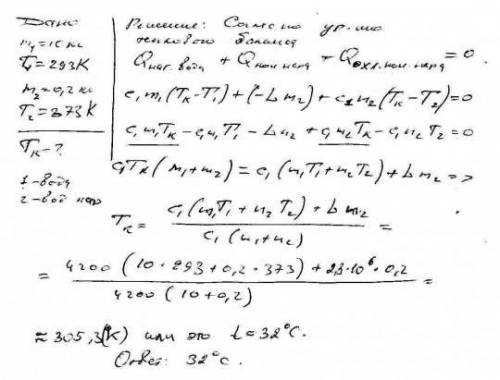 Дано
m₁ = 10 кг
T₁ = 293K
m₂ = 0,2 кг
T₂ = 373K
Tк - ?
1 - вода
2 - вод. пар
Решение: Согласно ур-ию
теплового баланса
Qнаг. вода + Qкон. пара + Qохл. кон. пара = 0
c₁m₁(Tк-T₁) + (-Lm₂) + c₁m₂(Tк-T₂) = 0
c₁m₁Tк - c₁m₁T₁ - Lm₂ + c₁m₂Tк - c₁m₂T₂ = 0
c₁Tк(m₁+m₂) = c₁(m₁T₁+m₂T₂) + Lm₂ =>
Tк = c₁(m₁T₁+m₂T₂) + Lm₂ / c₁(m₁+m₂) =
= 4200(10·293+0,2·373) + 2,3·10⁶·0,2 / 4200(10+0,2) =
≈ 305,3(K) или это t = 32°C.
Ответ: 32°C.